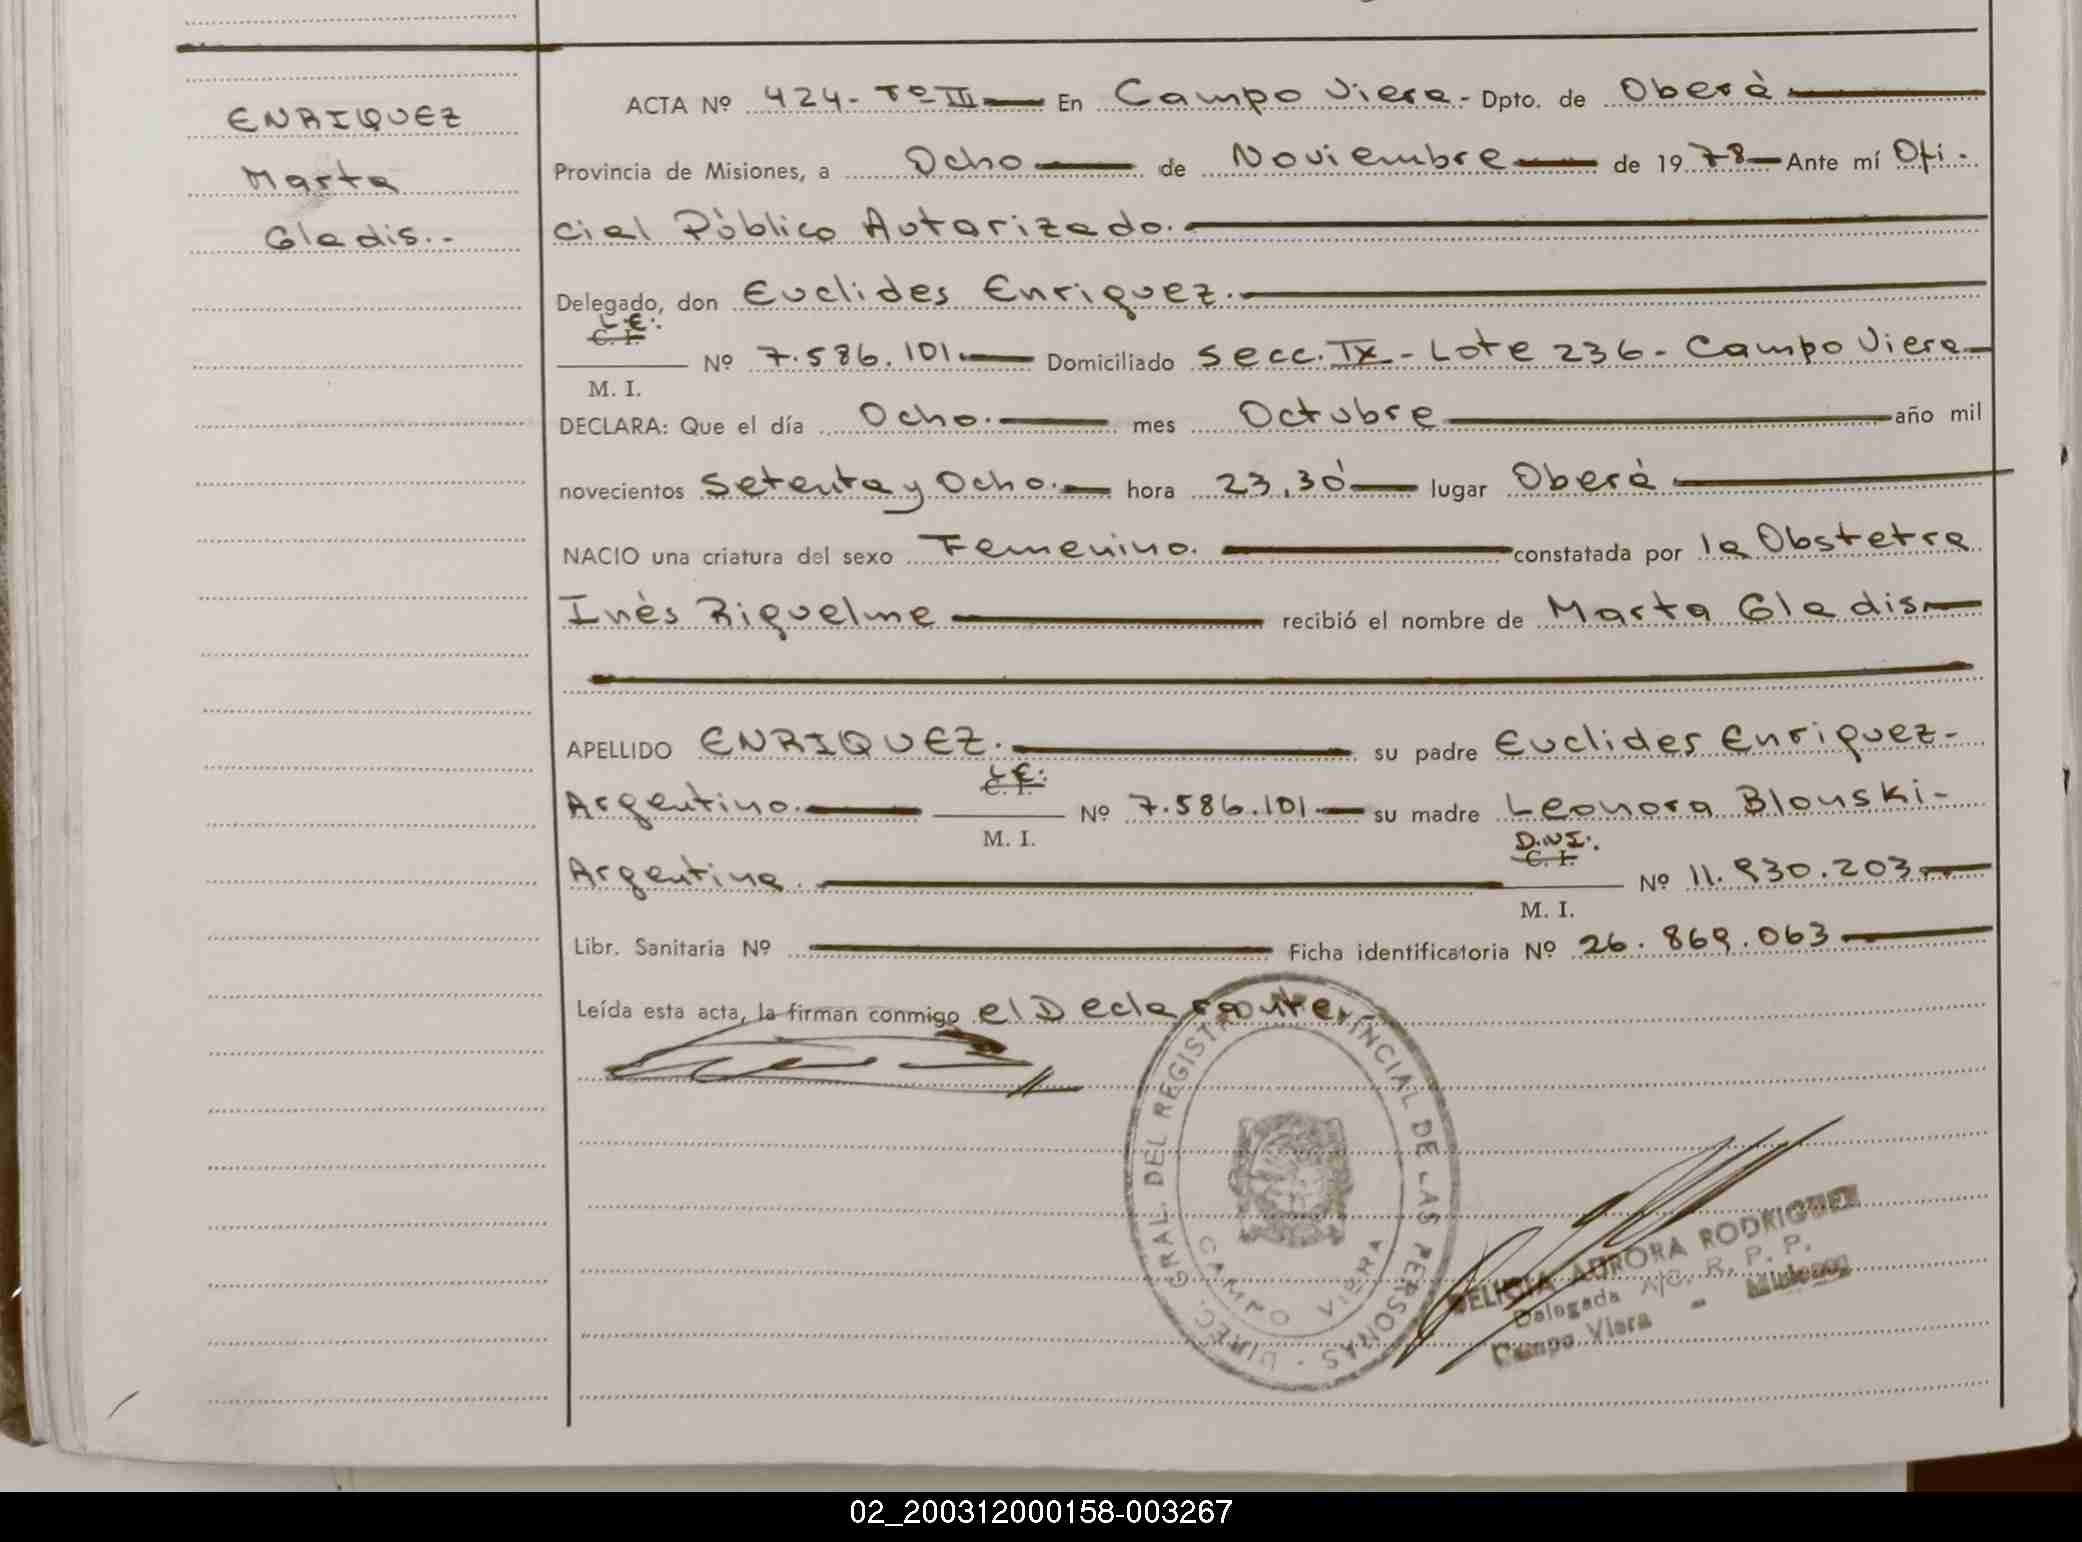 ENRIQUEZ
Marta
Gladis.-
ACTA Nº 424- Tº III En Campo Viera- Dpto. de Oberà
Provincia de Misiones, a Ocho de Noviembre de 1978 Ante mí Ofi-
cial Pùblico Autorizado.
Delegado, don Euclides Enriquez.
L.E.
C. I.
M. I.
Nº 7.586.101. Domiciliado Secc. IX - Lote 236- Campo Viera
DECLARA: Que el día Ocho. mes Octubre año mil
novecientos Setenta y Ocho. hora 23,30 lugar Oberà
NACIO una criatura del sexo Femenino. constatada por la Obstetra
Inès Riquelme recibió el nombre de Marta Gladis
APELLIDO ENRIQUEZ. su padre Euclides Enriquez-
L.E.
C. I.
M. I.
Argentino. Nº 7.586.101. su madre Leonora Blonski-
D.N.I.
C. I.
M. I.
Argentina. Nº 11.930.203
Libr. Sanitaria Nº Ficha identificatoria Nº 26.869.063
Leída esta acta, la firman conmigo el Declarante.-
DIREC. GRAL. DEL REGISTRO PROVINCIAL DE LAS PERSONAS
CAMPO VIERA
DELICIA AURORA RODRIGUEZ
Delegada A/C. R. P. P.
Campo Viera - Misiones
02_200312000158-003267